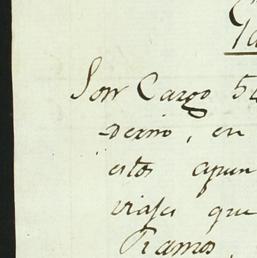 Son Cargo 5
derno, en
estos apun
viajes que
Ramos,